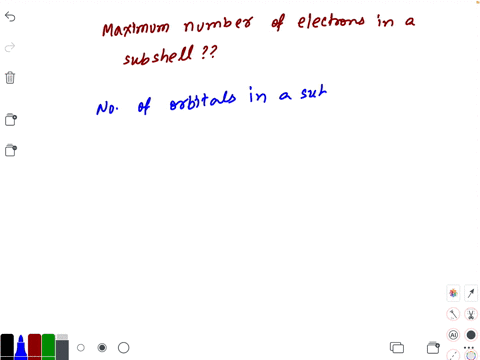 Maximum number of electrons in a
subshell ??
No. of orbitals in a sub
AI